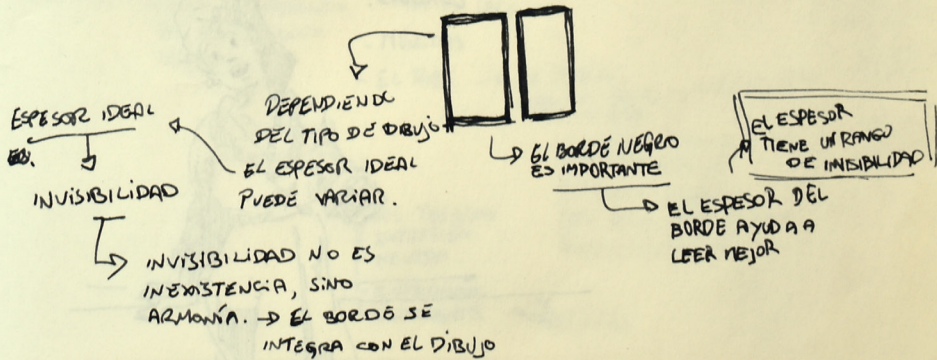 ESPESOR IDEAL
INVISIBILIDAD
INVISIBILIDAD NO ES
INEXISTENCIA, SINO
ARMONÍA. → EL BORDE SE
INTEGRA CON EL DIBUJO
DEPENDIENDO
DEL TIPO DE DIBUJO
EL ESPESOR IDEAL
PUEDE VARIAR.
EL BORDE NEGRO
ES IMPORTANTE
EL ESPESOR DEL
BORDE AYUDA A
LEER MEJOR
EL ESPESOR
TIENE UN RANGO
DE INVISIBILIDAD